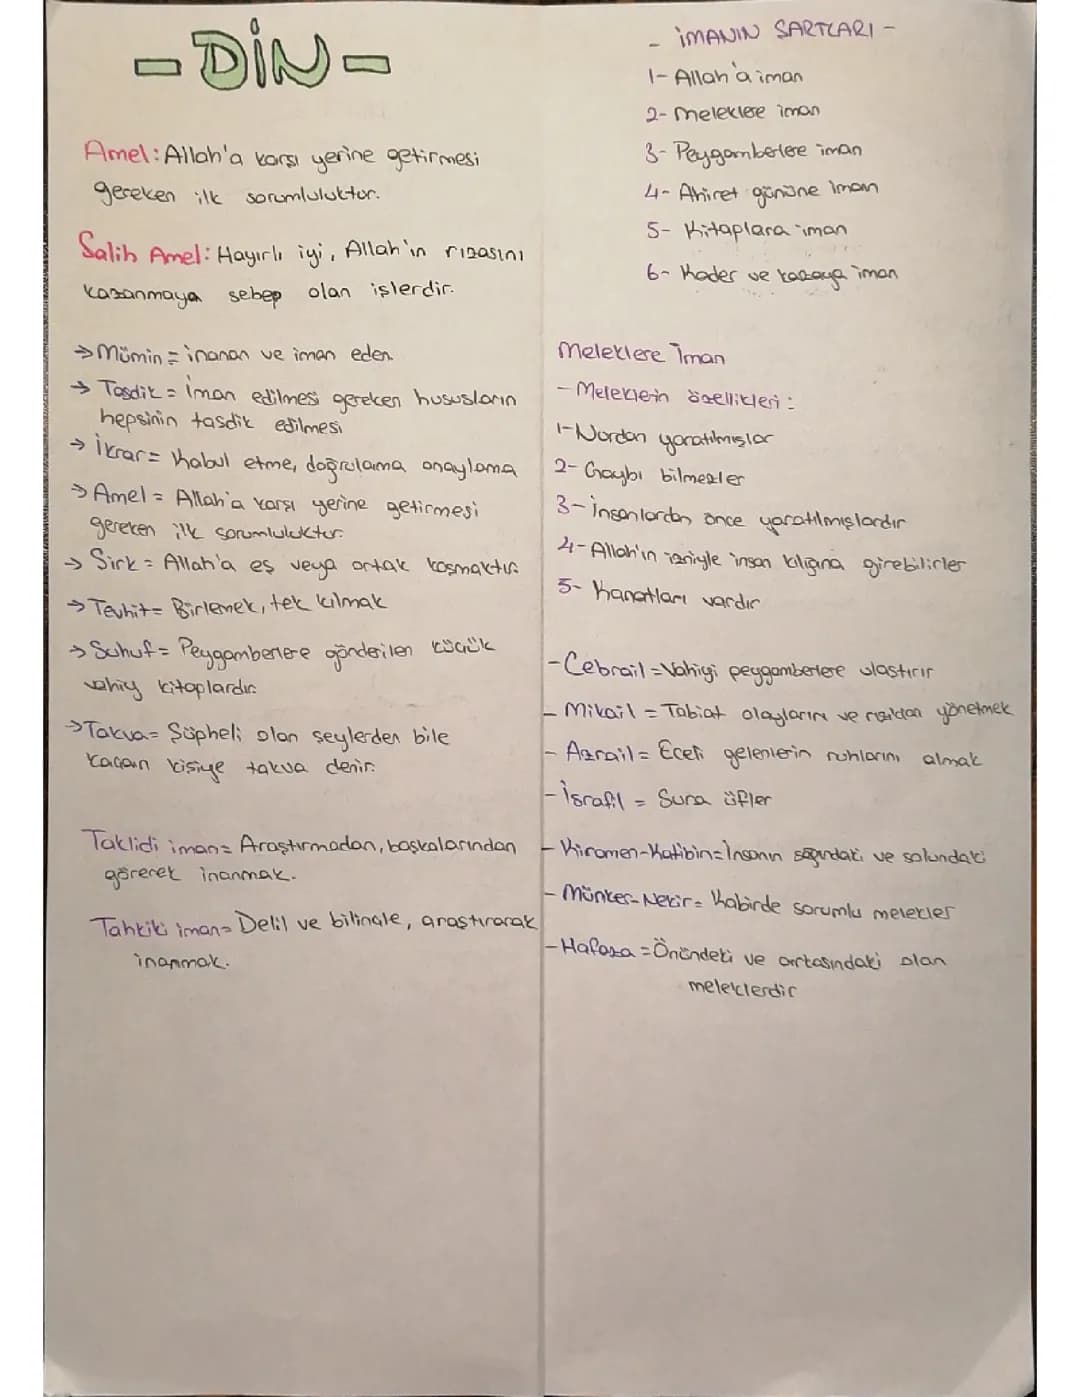 -DİN-
Amel: Allah'a karşı yerine getirmesi
gereken ilk sorumluluktur.
Salih Amel: Hayırlı iyi, Allah'ın rızasını
kazanmaya sebep olan işlerdir.
→ Mümin = inanan ve iman eden.
→ Tasdik = iman edilmesi gereken hususların
hepsinin tasdik edilmesi
→ İkrar = Kabul etme, doğrulama onaylama
→ Amel = Allah'a karşı yerine getirmesi
gereken ilk sorumluluktur.
→ Şirk = Allah'a eş veya ortak koşmaktır.
→ Tevhit = Birlemek, tek kılmak
→ Suhuf = Peygamberlere gönderilen küçük
vahiy kitaplardır.
→ Takva = Şüpheli olan şeylerden bile
kaçan kişiye takva denir.
Taklidi iman = Araştırmadan, başkalarından
görerek inanmak.
Tahkiki iman = Delil ve bilinçle, araştırarak
inanmak.
- İMANIN ŞARTLARI -
1- Allah'a iman
2- Meleklere iman
3- Peygamberlere iman
4- Ahiret gününe iman
5- Kitaplara iman
6- Kader ve kazaya iman
Meleklere İman
- Meleklerin özellikleri :
1- Nurdan yaratılmışlar
2- Gaybı bilmezler
3- İnsanlardan önce yaratılmışlardır
4- Allah'ın izniyle insan kılığına girebilirler
5- Kanatları vardır
- Cebrail = Vahiyi peygamberlere ulaştırır
- Mikail = Tabiat olaylarını ve rızıkları yönetmek
- Azrail = Eceli gelenlerin ruhlarını almak
- İsrafil = Sura üfler
- Kiramen-Katibin = İnsanın sağındaki ve solundaki
- Münker-Nekir = Kabirde sorumlu melekler
- Hafaza = Önündeki ve arkasındaki olan
meleklerdir